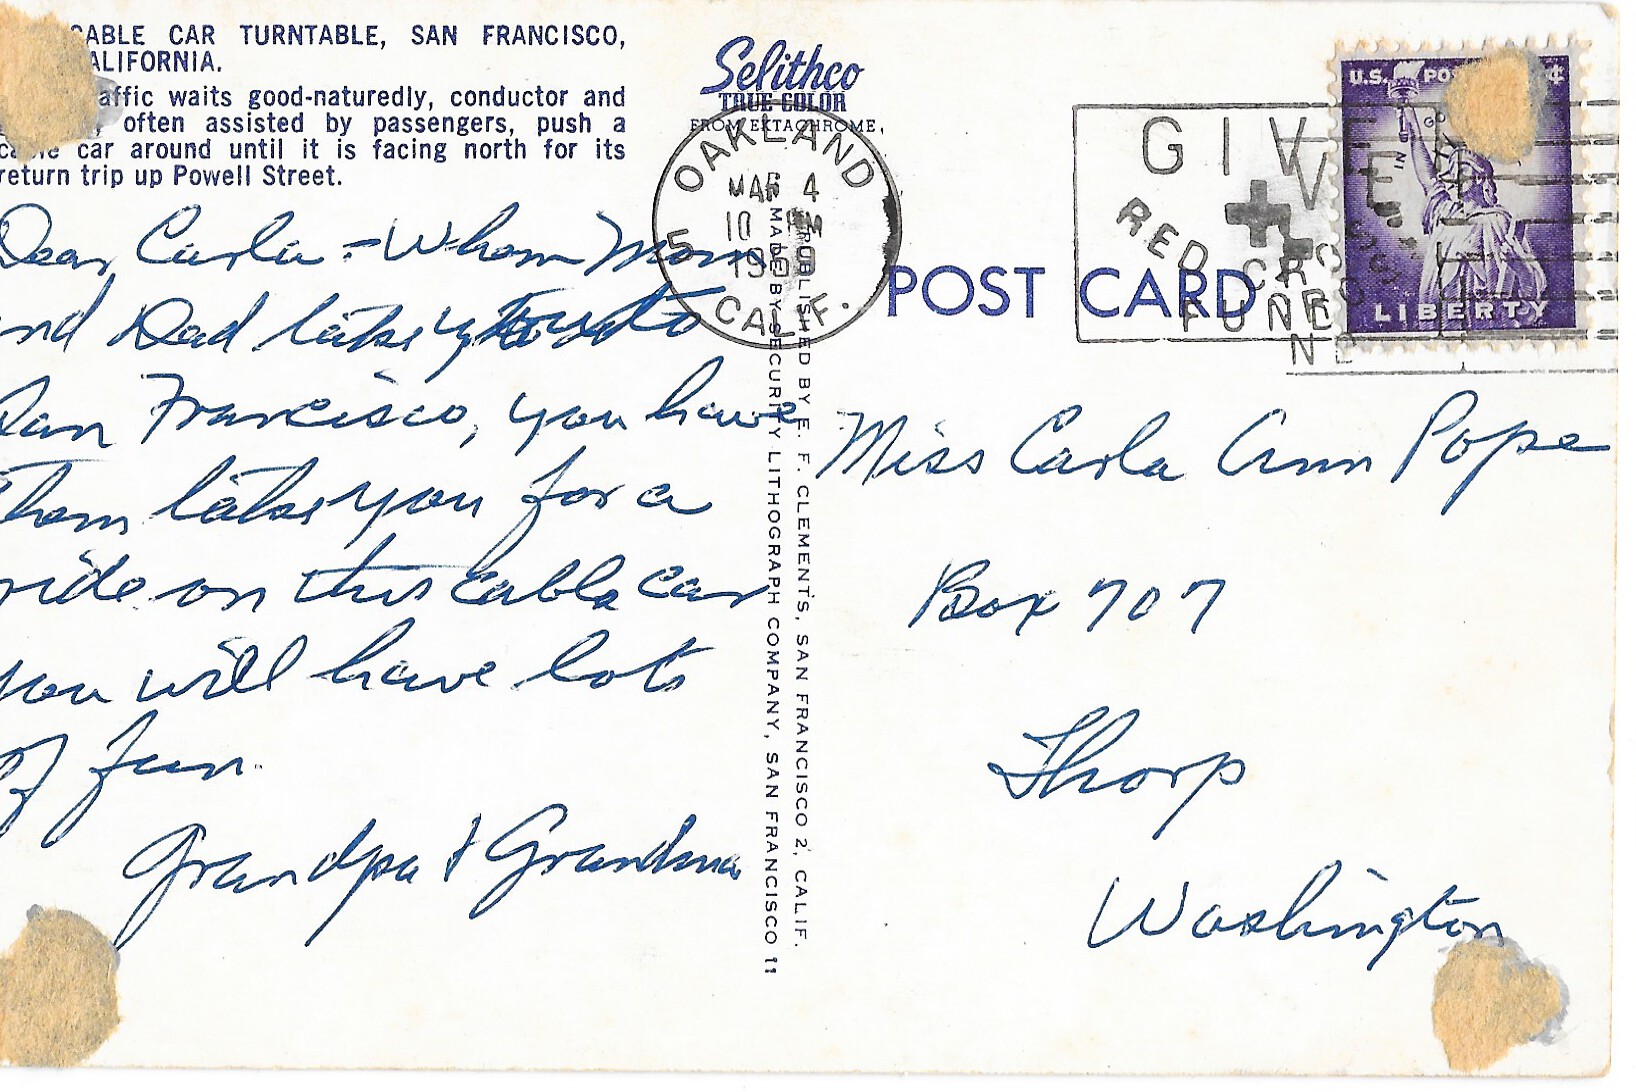 CABLE CAR TURNTABLE, SAN FRANCISCO,
CALIFORNIA.
affic waits good-naturedly, conductor and
, often assisted by passengers, push a
cable car around until it is facing north for its
return trip up Powell Street.
Dear Carla - When Mom
and Dad take you to
San Francisco, you have
them take you for a
ride on this cable car
you will have lots
of fun.
Grandpa & Grandma
Selithco
TRUE COLOR
FROM EKTACHROME,
PUBLISHED BY E. F. CLEMENTS, SAN FRANCISCO 2, CALIF.
MADE BY SECURITY LITHOGRAPH COMPANY, SAN FRANCISCO 11
OAKLAND
MAR 4
10 PM
5
CALIF.
POST CARD
GIVE
RED CRO
FUND
U.S. PO ¢
LIBERTY
Miss Carla Ann Pope
Box 707
Thorp
Washington